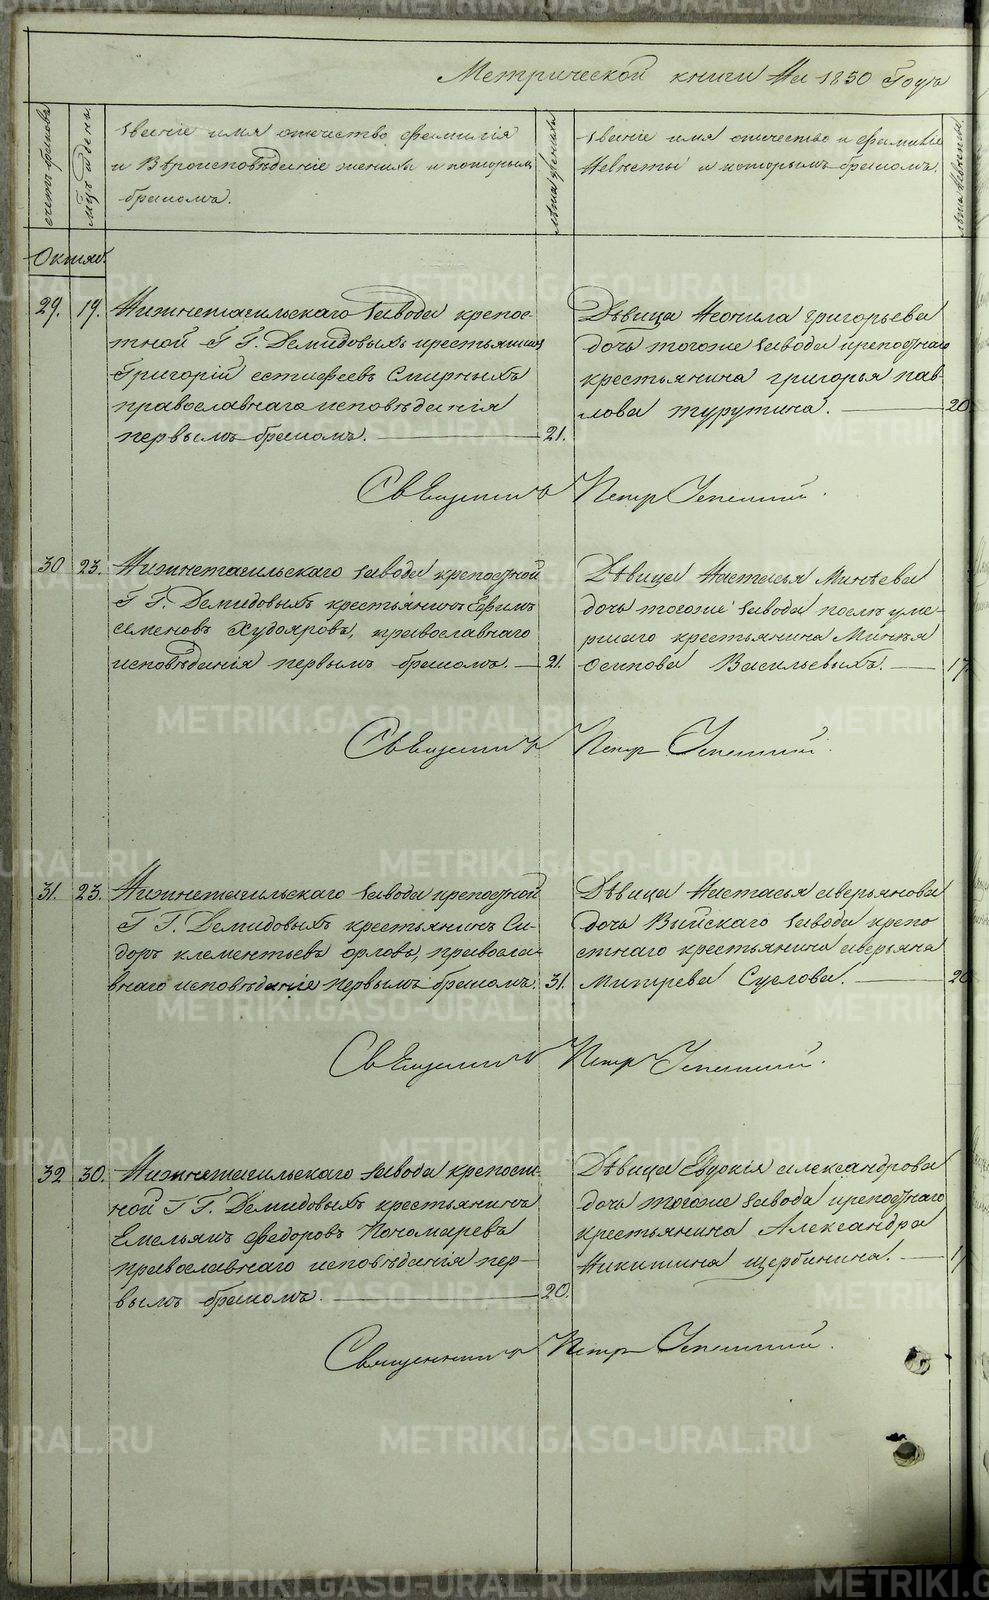 Метрической книги На 1850 Годъ
счетъ браковъ
мцъ и день
званіе имя отчество фамилія
и Вѣроисповѣданіе жениха и которымъ
бракомъ.
лѣта жениха
званіе имя отчество и фамилія
Невѣсты и которымъ бракомъ.
лѣта Невѣсты
Октяб.
29. 19. Нижнетагильскаго завода крепос-
тной Г Г. Демидовыхъ крестьянинъ
Григорій естифеевъ Смирныхъ
православнаго исповѣданія
первымъ бракомъ. 21.
Дѣвица Неонила григорьева
дочь тогоже завода крепостнаго
крестьянина григорья пав-
лова турутина. 20
Священникъ Петр Успенский.
30 23. Нижнетагильскаго завода крепостной
Г Г. Демидовыхъ крестьянинъ Ефимъ
семеновъ Худояровъ, православнаго
исповѣданія первымъ бракомъ. 21.
Дѣвица Настасья Минѣева
дочь тогоже завода послѣ уме-
ршаго крестьянина Минѣя
Осипова Васильевыхъ. 17
Священникъ Петр Успенский.
31. 23. Нижнетагильскаго завода крепостной
Г Г. Демидовыхъ крестьянинъ Си-
доръ клементьевъ орловъ, правосла-
внаго исповѣданія первымъ бракомъ. 31.
Дѣвица Настасья аверьянова
дочь Выйскаго завода крепо
стнаго крестьянина аверьяна
Митрева Суслова. 20
Священникъ Петр Успенский.
32 30. Нижнетагильскаго завода крепост-
ной Г Г. Демидовыхъ крестьянинъ
Емельянъ Федоровъ Пономаревъ
православнаго исповѣданія пер-
вымъ бракомъ. 20.
Дѣвица Евдокія александрова
дочь тогоже завода крепостнаго
крестьянина Александра
Никитина щербинина.
Священникъ Петр Успенский.
METRIKI.GASO-URAL.RU